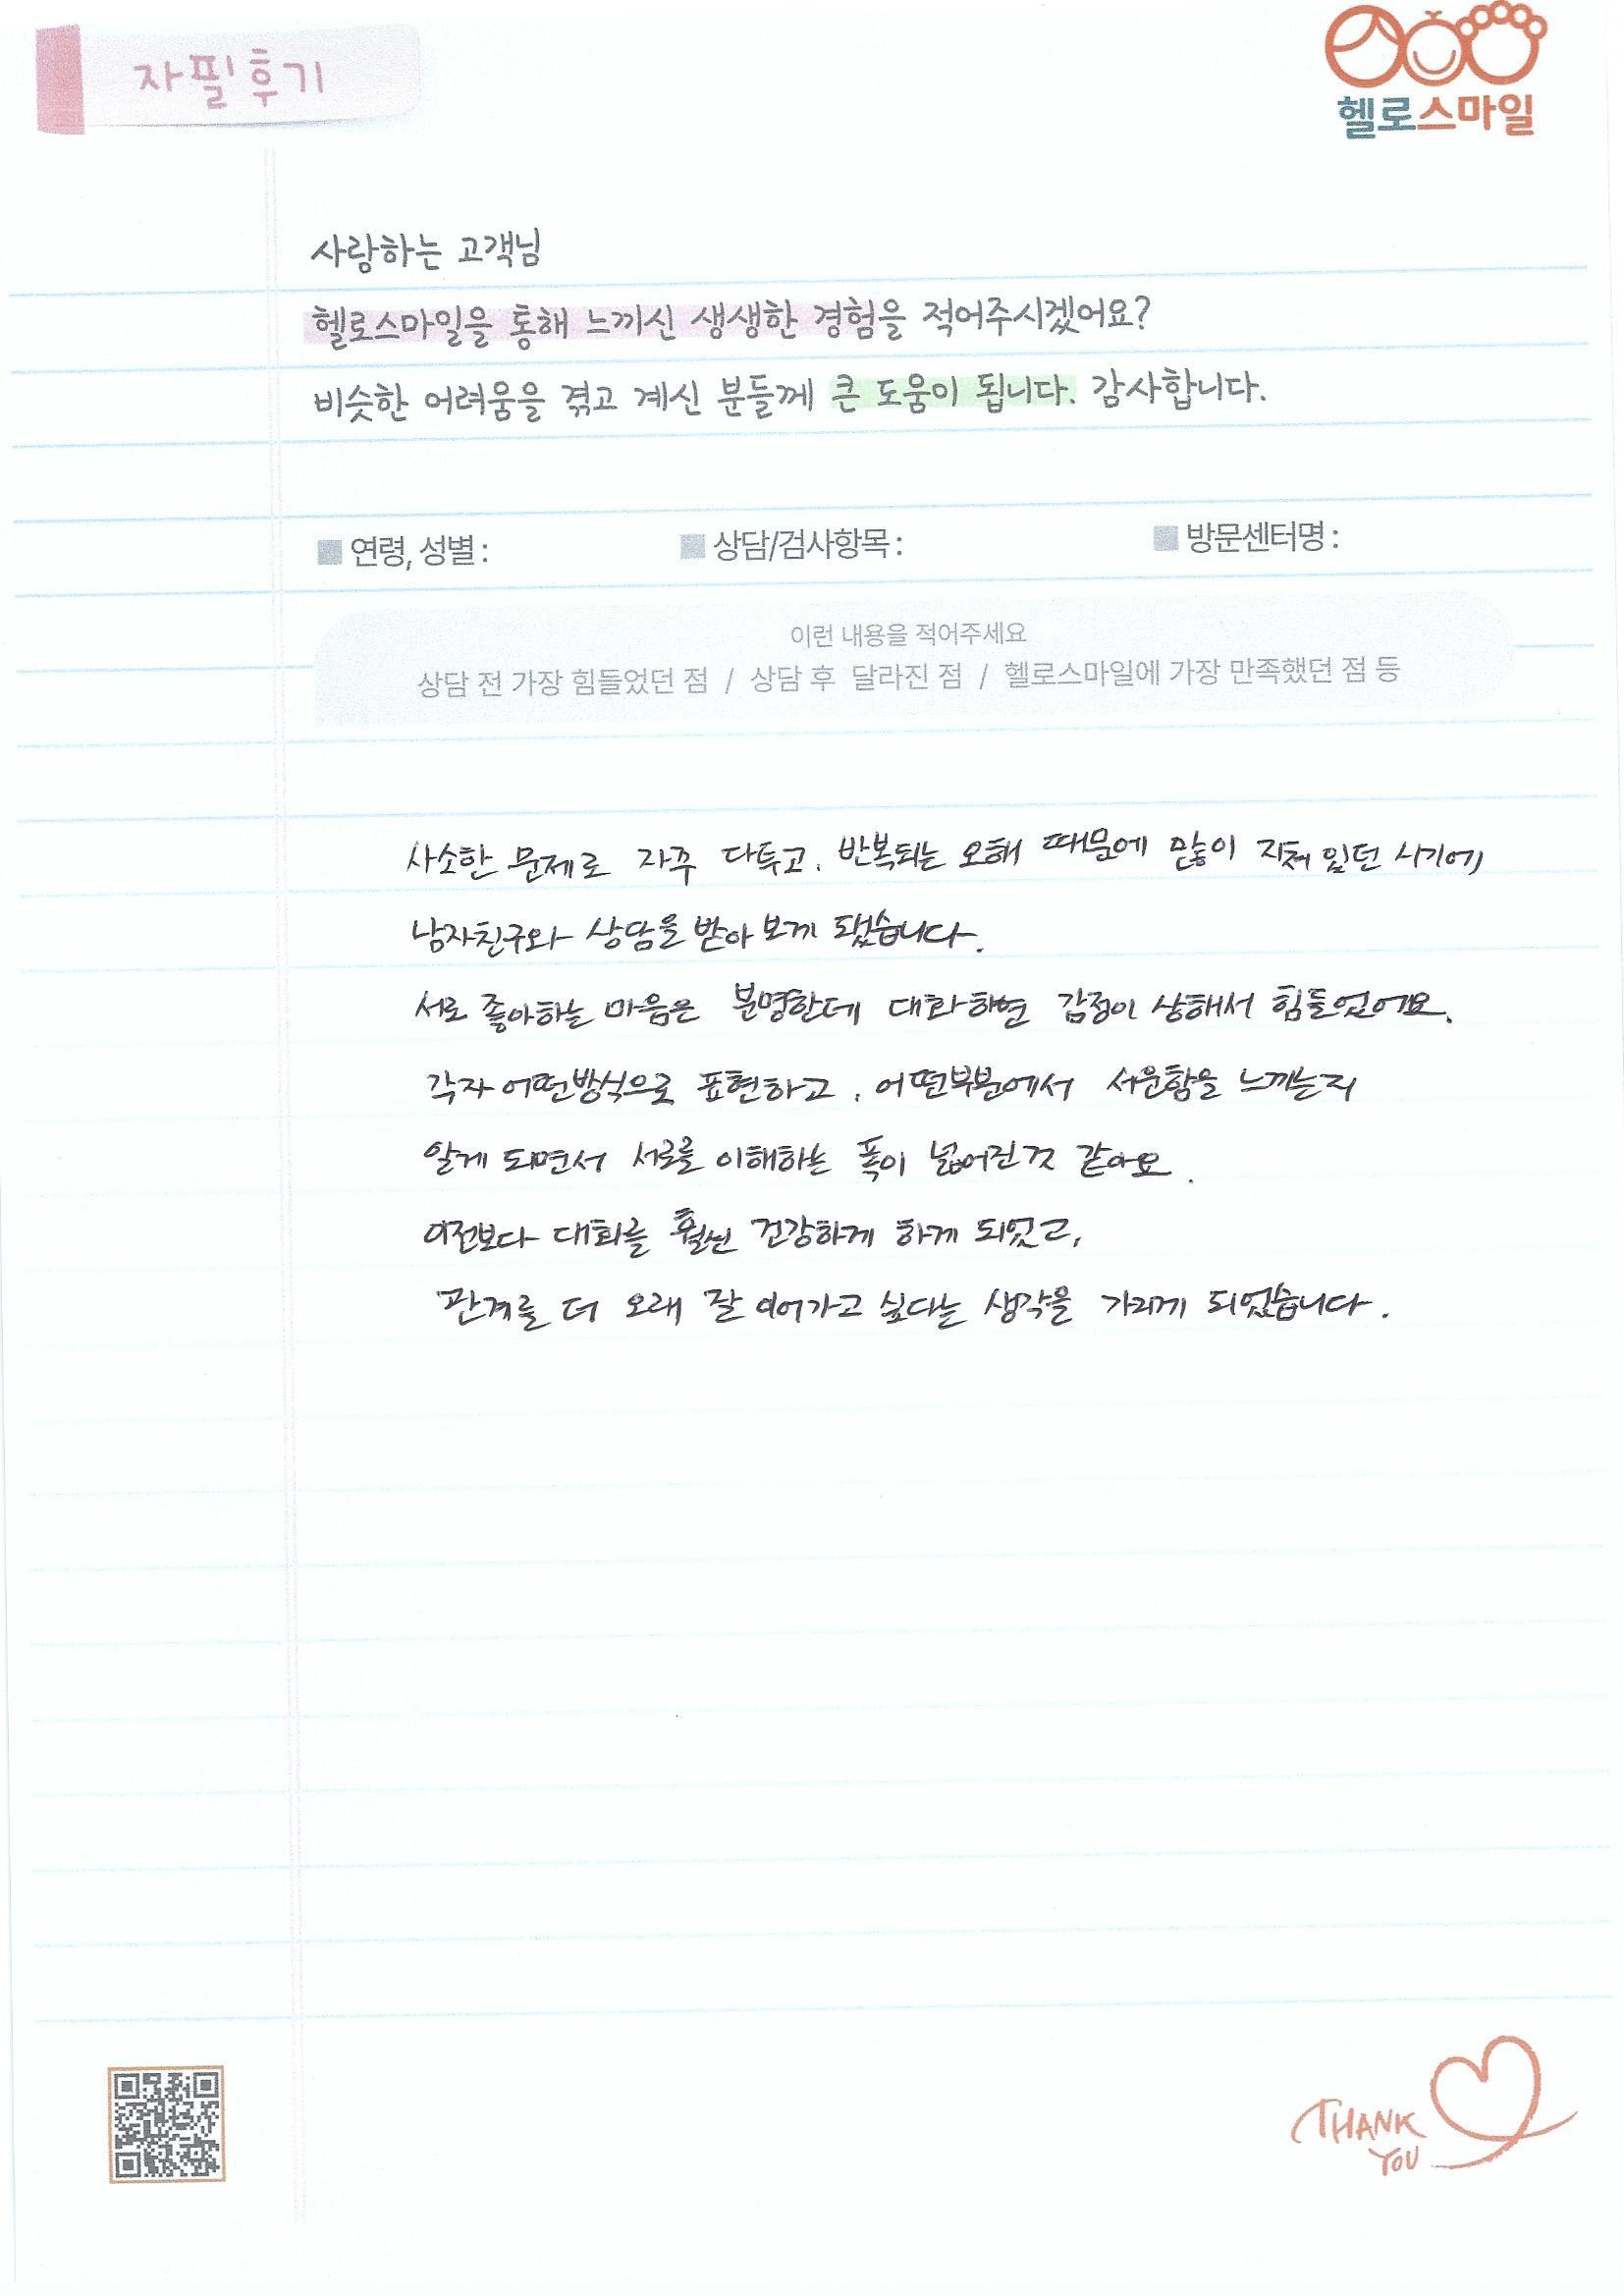 자필후기
헬로스마일
사랑하는 고객님
헬로스마일을 통해 느끼신 생생한 경험을 적어주시겠어요?
비슷한 어려움을 겪고 계신 분들께 큰 도움이 됩니다. 감사합니다.
연령, 성별 : 상담/검사항목 : 방문센터명 :
이런 내용을 적어주세요
상담 전 가장 힘들었던 점 / 상담 후 달라진 점 / 헬로스마일에 가장 만족했던 점 등
사소한 문제로 자꾸 다투고, 반복되는 오해 때문에 많이 지쳐 있던 시기에
남자친구와 상담을 받아 보게 됐습니다.
서로 좋아하는 마음은 분명한데 대화하면 감정이 상해서 힘들었어요.
각자 어떤방식으로 표현하고, 어떤부분에서 서운함을 느끼는지
알게 되면서 서로를 이해하는 폭이 넓어진것 같아요.
이전보다 대화를 훨씬 건강하게 하게 되었고,
관계를 더 오래 잘 이어가고 싶다는 생각을 가지게 되었습니다.
THANK
YOU